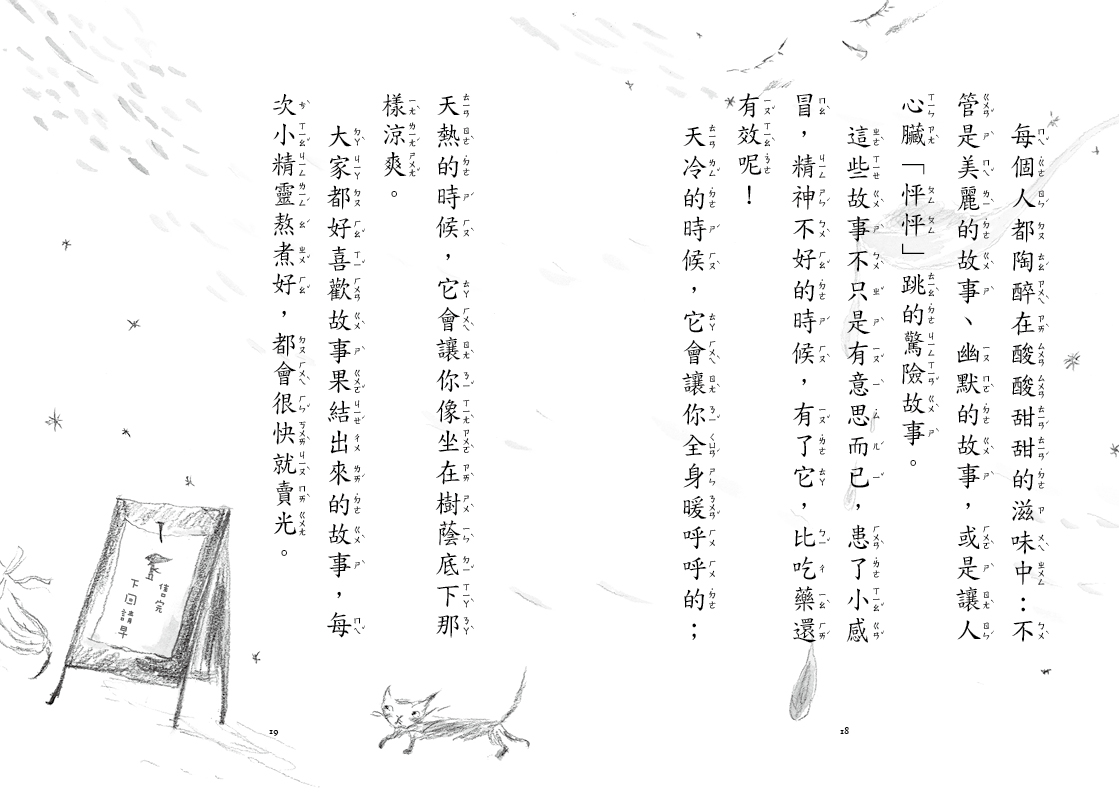 每個人都陶醉在酸酸甜甜的滋味中：不
管是美麗的故事、幽默的故事，或是讓人
心臟「怦怦」跳的驚險故事。
這些故事不只是有意思而已，患了小感
冒，精神不好的時候，有了它，比吃藥還
有效呢！
天冷的時候，它會讓你全身暖呼呼的；
18
天熱的時候，它會讓你像坐在樹蔭底下那
樣涼爽。
大家都好喜歡故事果結出來的故事，每
次小精靈熬煮好，都會很快就賣光。
售完
下回請早
19